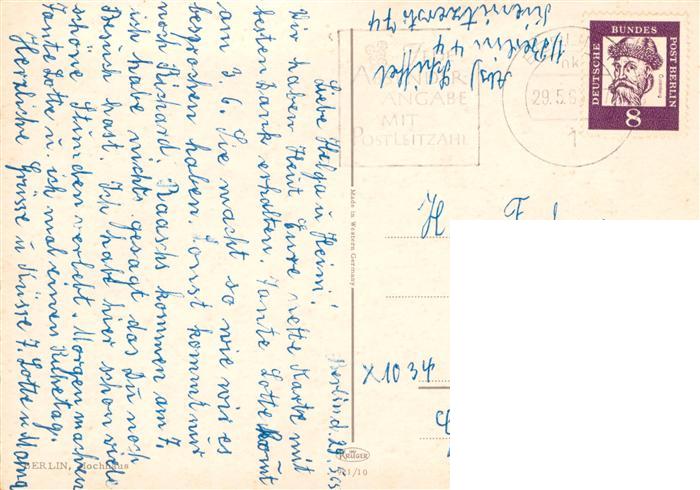 Berlin, d. 29.5.63
Liebe Helga u. Heim!
Wir haben Heut Eure nette Karte mit
besten Dank erhalten. Tante Lotte kommt
am 3. 6. Sie macht so wie wir es
besprochen haben. Sonst kommt nur
noch Richard. Raaschs kommen am 7.
ich habe nichts gesagt das Du noch
Besuch hast. Ich habe hier schon viele
schöne Stunden verlebt. Morgen machen
Tante Lotte u. ich mal einen Ruhetag.
Herzliche Grüsse u Küsse T. Lotte u Mama
Abs/
Schiffel
1/Berlin 44
74
ANGABE
MIT
POSTLEITZAHL
29.5.6
1
DEUTSCHE BUNDES POST BERLIN
Gutenberg
8
Made in Western Germany
X 1034
KRÜGER
921/10
BERLIN, Hochhaus